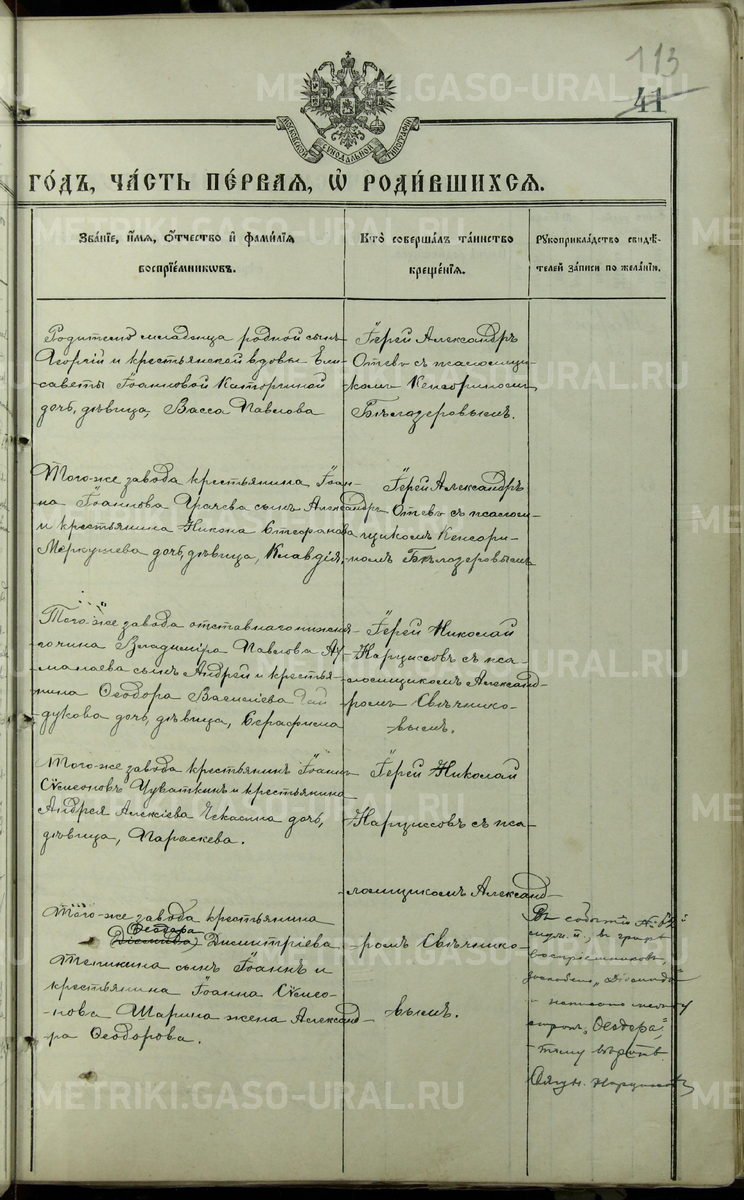 113
41
МОСКОВСКОЙ СѴНОДАЛЬНОЙ ТИПОГРАФІИ
ГО́ДЪ, ЧА́СТЬ ПЕ́РВАЯ, Ѡ҆ РОДИ́ВШИХСЯ.
Зва́нїе, и҆́мѧ, ѻ҆́тчество и҆ фами́лїѧ
воспрїе́мникѡвъ.
Кто̀ соверша́лъ та́инство
креще́нїѧ.
Рꙋкоприкла́дство свидѣ́-
телей за́писи по жела́нїю.
младенца родной сынъ
Георгій и крестьянской вдовы Ели-
саветы Іоанновой Каторгиной
дочь, дѣвица, Васса Павлова
Іерей Александръ
съ псаломщи-
комъ Кенсориномъ
Бѣлозеровымъ.
Того-же завода крестьянина Іоан-
на Іоаннова Грачева сынъ Александръ
и крестьянина Никона Стефанова
Меркушева дочь, дѣвица, Клавдія.
Іерей Александръ
съ псалом-
щикомъ Кенсори-
номъ Бѣлозеровымъ
Того-же завода отставнаго
Владиміра Павлова
сынъ Андрей и крестья-
нина Ѳеодора Василіева Гай
дукова дочь, дѣвица, Серафима
Іерей Николай
Нарциссовъ съ пса-
ломщикомъ Александ-
ромъ Свѣчнико-
вымъ.
Того-же завода крестьянинъ Іоаннъ
Сѵмеоновъ Чуваткинъ и крестьянина
Андрея Алексіева дочь,
дѣвица, Параскева.
Іерей Николай
Нарциссовъ съ пса-
ломщикомъ Александ-
ромъ Свѣчнико-
вымъ.
Того-же завода крестьянина
Ѳеодора
Димитріева
Тепикина сынъ Іоаннъ и
крестьянина Іоанна Сѵмео-
нова Шарина жена Александ-
ра Ѳеодорова.
Въ событіи № 62
въ графѣ
воспріемниковъ,
„Ѳеодора“,
METRIKI.GASO-URAL.RU